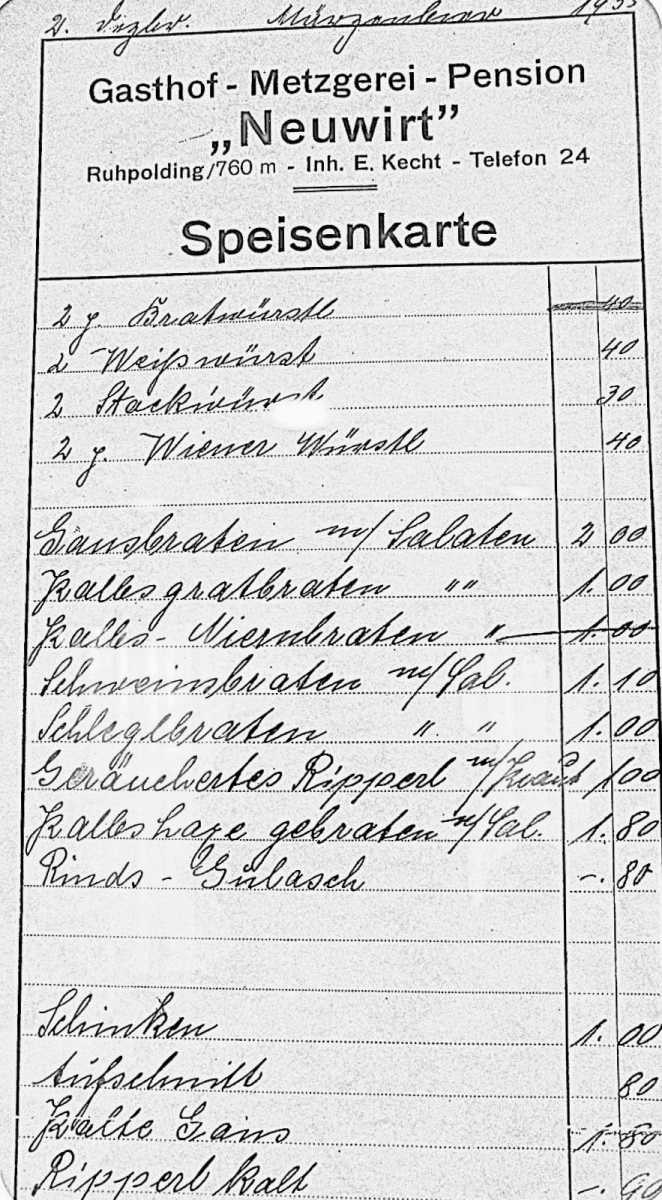 2. Dezbr. Märzenbier 193
Gasthof - Metzgerei - Pension
„Neuwirt”
Ruhpolding/760 m - Inh. E. Kecht - Telefon 24
Speisenkarte
2 g. Bratwürstl 40
2 Weißwürst 40
2 Stockwürst 30
2 g. Wiener Würstl 40
Gansbraten m/ Salaten 2 00
Kalbsgratbraten " " 1. 00
Kalbs- Niernbraten " 1. 00
Schweinsbraten m/ Sal. 1. 10
Schleglbraten " " 1. 00
Geräuchertes Ripperl m/ Kraut 1 00
Kalbshaxe gebraten m/ Sal. 1. 80
Rinds - Gulasch -. 80
Schinken 1. 00
Aufschnitt 80
Kalte Gans 1. 80
Ripperl kalt -. 90